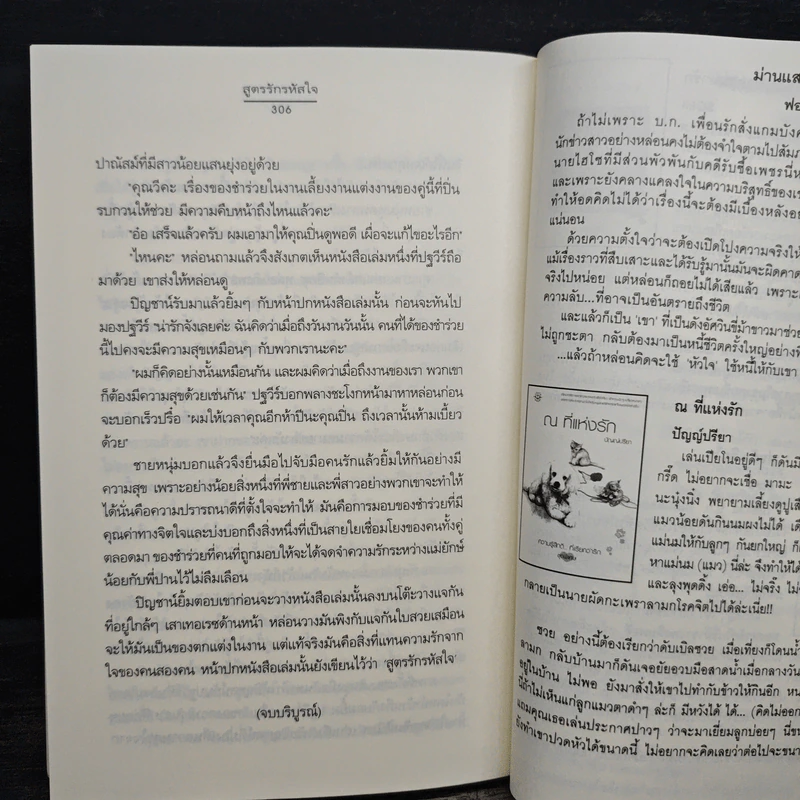 สูตรรักรหัสใจ
306
ปาณัสม์ที่มีสาวน้อยแสนยุ่งอยู่ด้วย
"คุณวีคะ เรื่องของชำร่วยในงานเลี้ยงงานแต่งงานของคู่นี้ที่ปิ่น
รบกวนให้ช่วย มีความคืบหน้าถึงไหนแล้วคะ"
"อ๋อ เสร็จแล้วครับ ผมเอามาให้คุณปิ่นดูพอดี เผื่อจะแก้ไขอะไรอีก"
"ไหนคะ" หล่อนถามแล้วจึงสังเกตเห็นหนังสือเล่มหนึ่งที่ปฐวีร์ถือ
มาด้วย เขาส่งให้หล่อนดู
ปิญชาน์รับมาแล้วยิ้มๆ กับหน้าปกหนังสือเล่มนั้น ก่อนจะหันไป
มองปฐวีร์ "น่ารักจังเลยค่ะ ฉันคิดว่าเมื่อถึงวันงานวันนั้น คนที่ได้ของชำร่วย
นี้ไปคงจะมีความสุขเหมือนๆ กับพวกเรานะคะ"
"ผมก็คิดอย่างนั้นเหมือนกัน และผมคิดว่าเมื่อถึงงานของเรา พวกเขา
ก็ต้องมีความสุขด้วยเช่นกัน" ปฐวีร์บอกพลางชะโงกหน้ามาหาหล่อนก่อน
จะบอกเร็วปรื๋อ "ผมให้เวลาคุณอีกห้าปีนะคุณปิ่น ถึงเวลานั้นห้ามเบี้ยว
ด้วย"
ชายหนุ่มบอกแล้วจึงยื่นมือไปจับมือคนรักแล้วยิ้มให้กันอย่างมี
ความสุข เพราะอย่างน้อยสิ่งหนึ่งที่พี่ชายและพี่สาวอย่างพวกเขาจะทำให้
ได้นั่นคือความปรารถนาดีที่ตั้งใจจะทำให้ มันคือการมอบของชำร่วยที่มี
คุณค่าทางจิตใจและบ่งบอกถึงสิ่งหนึ่งที่เป็นสายใยเชื่อมโยงของคนทั้งคู่
ตลอดมา ของชำร่วยที่คนที่ถูกมอบให้จะได้จดจำความรักระหว่างแม่ยักษ์
น้อยกับพี่ปานไว้ไม่ลืมเลือน
ปิญชาน์ยิ้มตอบเขาก่อนจะวางหนังสือเล่มนั้นลงบนโต๊ะวางแจกัน
ที่อยู่ใกล้ๆ เสาเทอเรซด้านหน้า หล่อนวางมันพิงกับแจกันใบสวยเสมือน
จะให้มันเป็นของตกแต่งในงาน แต่แท้จริงมันคือสิ่งที่แทนความรักจาก
ใจของคนสองคน หน้าปกหนังสือเล่มนั้นยังเขียนไว้ว่า 'สูตรรักรหัสใจ'
(จบบริบูรณ์)
ม่านแส
ฟอ
ถ้าไม่เพราะ บ.ก. เพื่อนรักสั่งแกมบังค
นักข่าวสาวอย่างหล่อนคงไม่ต้องจำใจตามไปสัมภ
นายไฮโซที่มีส่วนพัวพันกับคดีรับซื้อเพชรนี่ห
และเพราะยังคลางแคลงใจในความบริสุทธิ์ของเข
ทำให้อดคิดไม่ได้ว่าเรื่องนี้จะต้องมีเบื้องหลังอย
แน่นอน
ด้วยความตั้งใจว่าจะต้องเปิดโปงความจริงให้
แม้เรื่องราวที่สืบเสาะและได้รับรู้มานั้นมันจะผิดคาด
จริงไปหน่อย แต่หล่อนก็ถอยไม่ได้เสียแล้ว เพราะ
ความลับ...ที่อาจเป็นอันตรายถึงชีวิต
และแล้วก็เป็น 'เขา' ที่เป็นดังอัศวินขี่ม้าขาวมาช่วย
ไม่ถูกชะตา กลับต้องมาเป็นหนี้ชีวิตครั้งใหญ่อย่างที่
...แล้วถ้าหล่อนคิดจะใช้ 'หัวใจ' ใช้หนี้ให้กับเขา
ณ ที่แห่งรัก
ปัญญ์ปรียา
ณ ที่แห่งรัก
ปัญญ์ปรียา
เล่นเปียโนอยู่ดีๆ ก็ดันมี
กรี๊ด ไม่อยากจะเชื่อ มามะ
นะนุ่งนิ่ง พยายามเลี้ยงดูปูเสื่
แมวน้อยดันกินนมผงไม่ได้ เดื
แม่นมให้กับลูกๆ กันยกใหญ่ ก็
หาแม่นม (แมว) นี่ล่ะ จึงทำให้ได้
และลุงพุดดิ้ง เอ่อ... ไม่จริ๊ง ไม่
กลายเป็นนายผัดกะเพราลามกโรคจิตไปได้ล่ะเนี่ย!!
ซวย อย่างนี้ต้องเรียกว่าดับเบิลซวย เมื่อเที่ยงก็โดนน้ำ
ลามก กลับบ้านมาก็ดันเจอยัยอวบมือสาดน้ำเมื่อกลางวัน
อยู่ในบ้าน ไม่พอ ยังมาสั่งให้เขาไปทำกับข้าวให้กินอีก หน
นี่ถ้าไม่เห็นแก่ลูกแมวตาดำๆ ล่ะก็ มีหวังได้ ได้... (คิดไม่ออก
แถมคุณเธอเล่นประกาศปาวๆ ว่าจะมาเยี่ยมลูกบ่อยๆ นี่ขน
ยังทำเขาปวดหัวได้ขนาดนี้ ไม่อยากจะคิดเลยว่าต่อไปจะขนา